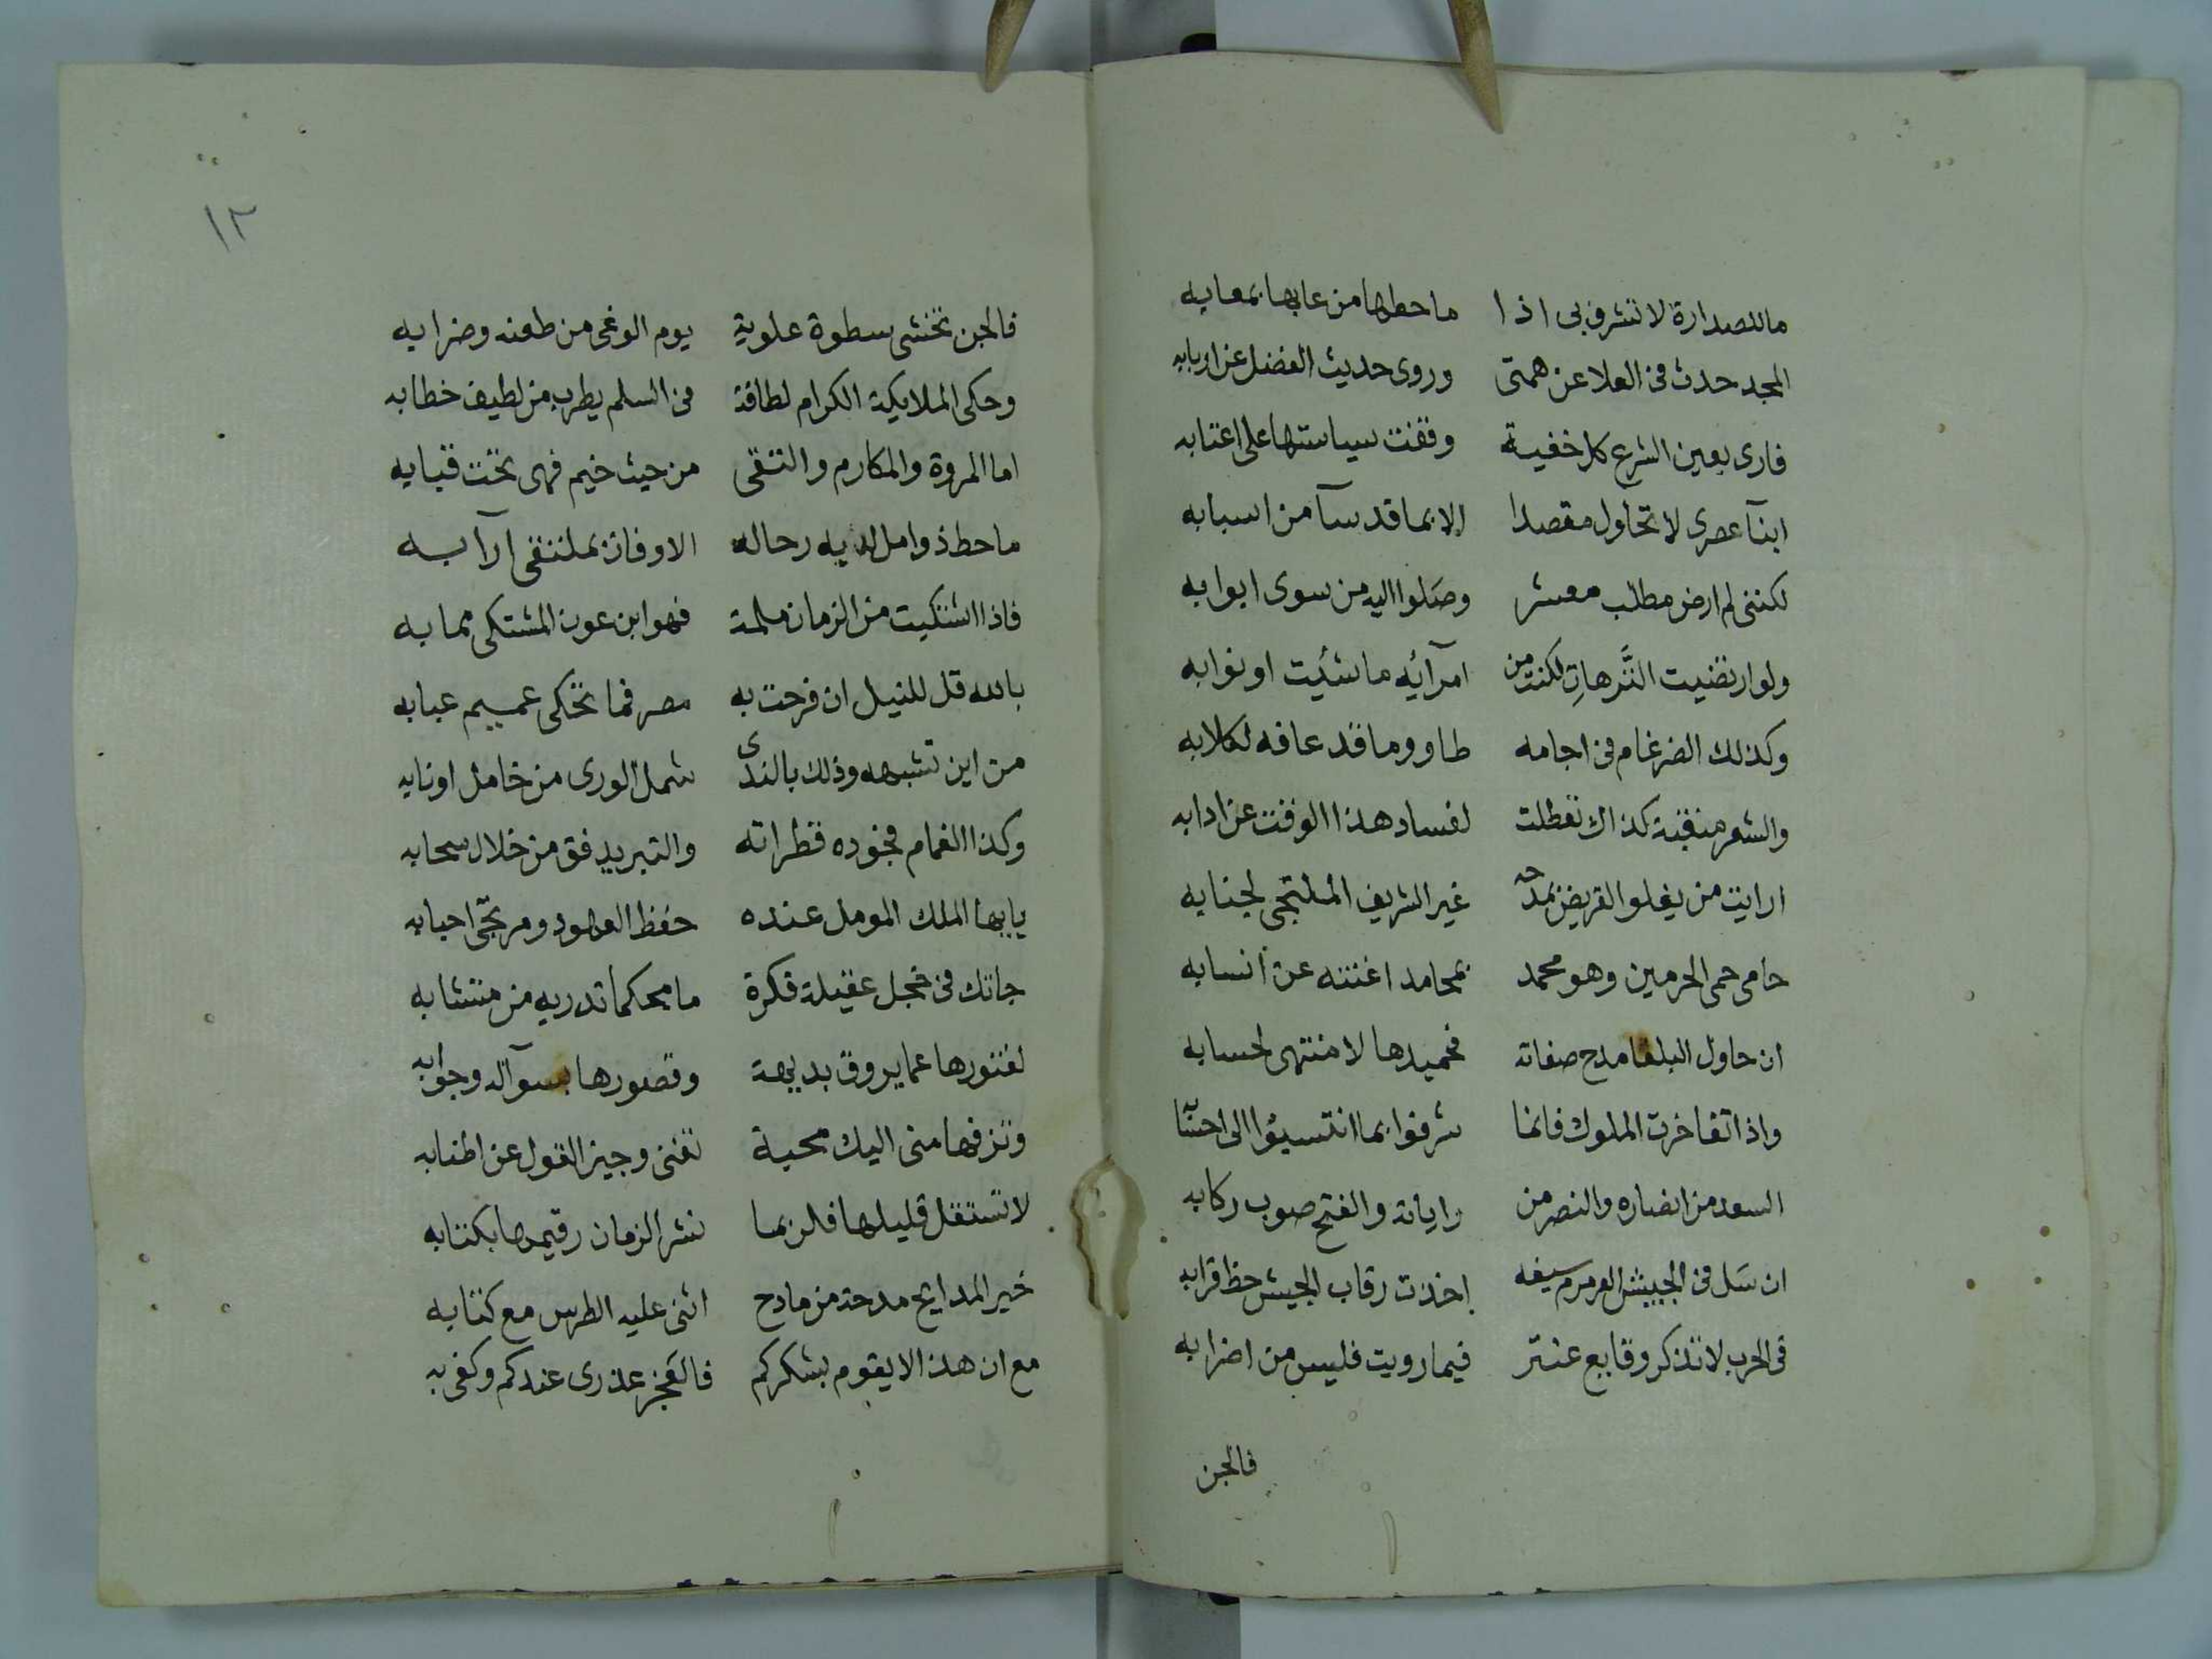 ما للصدارة لا تشرف بى اذا ما حطها من عابها بمعابه
المجد حدث فى العلا عن همتى وروى حديث الفضل عن اربابه
فارى بعين الشرع كل خفية وقفت سياستها على اعتابه
ابنآ عصرى لا تحاول مقصدا الا بما قد سآ من اسبابه
لكننى لم ارض مطلب معشر وصَلوا اليه من سوى ابوابه
ولو ارتضيت التَّرهاتِ لكنت من امرآئه ما شئت او نوابه
وكذلك الضرغام فى اجامه طاو وما قد عافه لكلابه
والشعر منقبة كذاك تعطلت لفساد هذا الوقت عن ادابه
ارايت من يغلو القريض بمدحه غير الشريف الملتجى لجنابه
حامى حمى الحرمين وهو محمد بمحامد اغنته عن انسابه
ان حاول البلغا مدح صفاته فحميدها لا منتهى لحسابه
واذا تفاخرت الملوك فانما شرفوا بما انتسبوا الى
السعد من انصاره والنصر من راياته والفتح صوب ركابه
ان سَل فى الجيش العرمرم سيفه اخذت رقاب الجيش حظ قرابه
فى الحرب لا تذكر وقايع عنتر فيما رويت فليس من اضرابه
فالجن
١٢
فالجن تخشى سطوة علوية يوم الوغى من طعنه وضرابه
وحكى الملايكة الكرام لطافة فى السلم يطرب من لطيف خطابه
اما المروة والمكارم والتقى من حيث خيم فهى تحت قبابه
ما حط ذو امل لديه رحاله الا وفاز بملتقى ارآبه
فاذا اشتكيت من الزمان ملمة فهو ابن عون المشتكى مما به
بالله قل للنيل ان فرحت به مصر فما تحكى عميم عبابه
من اين تشبهه وذلك بالندى شمل الورى من خامل او نابه
وكذا الغمام فجوده قطراته والتبر يدفق من خلال سحابه
يايها الملك المومل عنده حفظ العهود ومرتجى احبابه
جاتك فى خجل عقيلة فكرة ما محكما تدريه من متشابه
لفتورها عما يروق بديهة وقصورها بسوآله وجوابه
وتزفها منى اليك محبة تغنى وجيز القول عن اطنابه
لا تستقل قليلها فلربما نشر الزمان رقيمها بكتابه
خير المدايح مدحة من مادح اثنى عليه الطرس مع كتابه
مع ان هذا لا يقوم بشكركم فالعَجز عذرى عندكم وكفى به